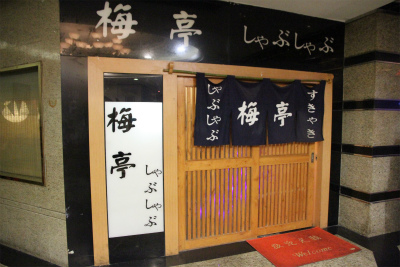 梅亭 しゃぶしゃぶ
しゃぶしゃぶ
梅亭
すきやき
梅亭
しゃぶしゃぶ
Welcome